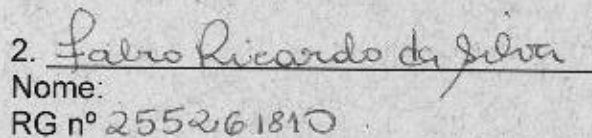 2. Fabio Ricardo da Silva
Nome:
RG nº 255261810